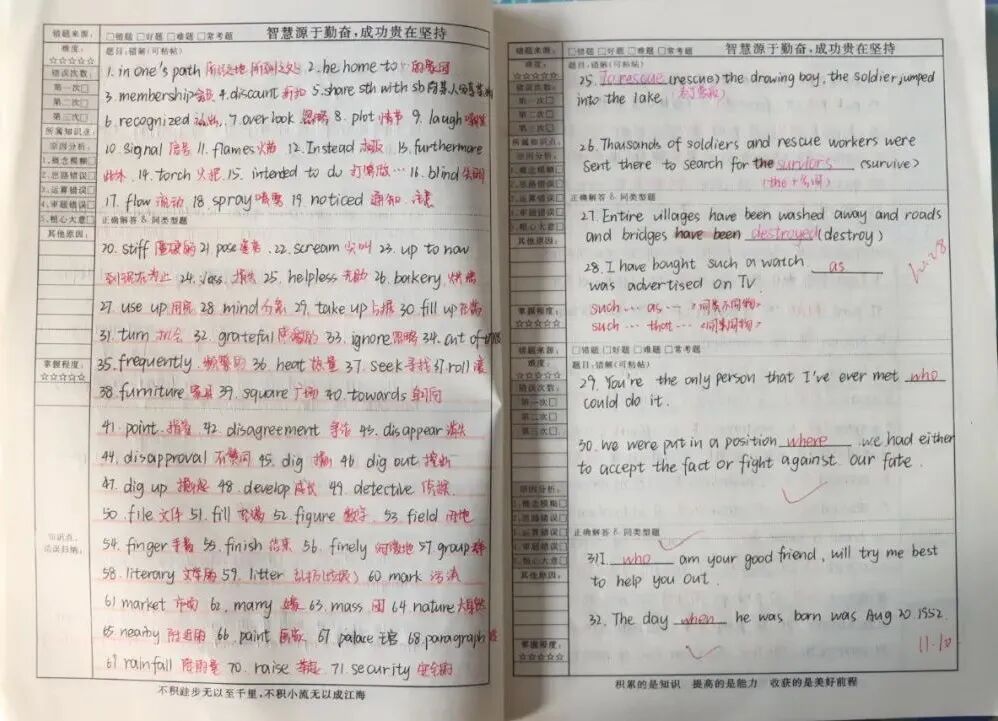 错题来源: □错题 □好题 □难题 □常考题 智慧源于勤奋,成功贵在坚持
难度: 题目:错解(可粘帖)
☆☆☆☆☆
错误次数:
第一次□
第二次□
第三次□
所属知识点:
原因分析:
1.概念模糊□
2.思路错误□
3.运算错误□
4.审题错误□
5.粗心大意□
其他原因:
掌握程度:
☆☆☆☆☆
知识点、
1. in one's path 所到之处 2. be home to 的家园
3. membership 会员 4. discount 折扣 5. share sth with sb 向某人
6. recognized 认出 7. overlook 忽略 8. plot 情节 9. laugh
10. signal 信号 11. flames 火焰 12. Instead 13. furthermore
此外 14. torch 火把 15. intended to do 打算做… 16. blind 失明
17. flow 流动 18 spray 喷雾 19. noticed 通知、注意
正确解答 & 同类型题
20. stiff 僵硬的 21. pose 22. scream 尖叫 23. up to now
到现在为止 24. loss 损失 25. helpless 无助 26. bakery 烘焙
27. use up 用完 28. mind 介意 29. take up 占据 30. fill up 充满
31. turn 机会 32. grateful 感激的 33. ignore 忽略 34. out of
35. frequently 频繁的 36. heat 热量 37. seek 寻找 37. roll 滚
38. furniture 家具 39. square 广场 40. towards 朝向
41. point 指着 42. disagreement 争论 43. disappear 消失
44. disapproval 不赞同 45. dig 46 dig out 挖出
47. dig up 48. develop 成长 49. detective 侦探
50. file 文件 51. fill 充满 52. figure 数字 53. field 田地
54. finger 手指 55. finish 结束 56. finely 57. group 群
58. literary 文学的 59. litter 乱扔(垃圾) 60. mark 污渍
61 market 市场 62. marry 嫁 63. mass 团 64. nature 大自然
65. nearby 附近的 66. paint 67. palace 王宫 68. paragraph
69 rainfall 降雨量 70. raise 举起 71. security 安全的
不积跬步无以至千里,不积小流无以成江海
错题来源: □错题 □好题 □难题 □常考题 智慧源于勤奋,成功贵在坚持
难度: 题目:错解(可粘帖)
☆☆☆☆☆
错误次数:
第一次□
第二次□
第三次□
所属知识点:
原因分析:
1.概念模糊□
2.思路错误□
3.运算错误□
4.审题错误□
5.粗心大意□
其他原因:
掌握程度:
☆☆☆☆☆
25. To rescue (rescue) the drowing boy, the soldier jumped
into the lake
26. Thousands of soldiers and rescue workers were
sent there to search for the survivors (survive)
(the+名词)
正确解答 & 同类型题
27. Entire villages have been washed away and roads
and bridges have been destroyed (destroy)
28. I have bought such a watch as
was advertised on TV.
such … as … <同类不同物>
such … that … <同类同物>
10.28
错题来源: □错题 □好题 □难题 □常考题
难度: 题目:错解(可粘帖)
☆☆☆☆☆
错误次数:
第一次□
第二次□
第三次□
29. You're the only person that I've ever met who
could do it.
30. we were put in a position where we had either
to accept the fact or fight against our fate.
原因分析:
1.概念模糊□
2.思路错误□
3.运算错误□
4.审题错误□
5.粗心大意□
其他原因:
正确解答 & 同类型题
31. I who am your good friend, will try me best
to help you out.
32. The day when he was born was Aug 20 1952.
11.10
掌握程度:
☆☆☆☆☆
积累的是知识 提高的是能力 收获的是美好前程